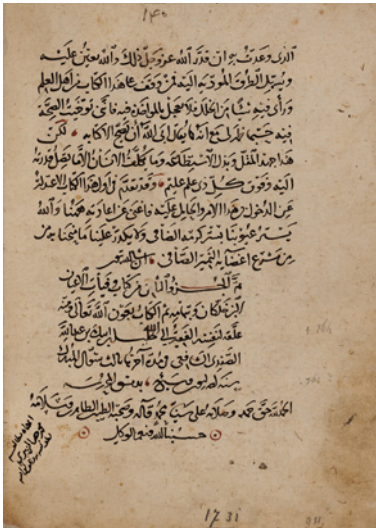 ١٤٠
الذي وعدت به ان قدر الله عز وجل ذلك والله يعين عليه
ويسهل الطرق المودية اليه فمن وقف على هذا الكتاب من اهل العلم
ورأى فيه شيئا من الخلل فلا يعجل بالمواخذه فيه فاني توخيت الصحة
فيه حسبما ظهر لي مع انه كما يقال ابى الله ان يصح الا كتابه لكن
هذا جهد المقل وبذل الاستطاعه وما يكلف الانسان الا ما تصل قدرته
اليه وفوق كل ذي علم عليم وقد تقدم في اول هذا الكتاب الاعتذار
عن الدخول في هذا الامر والحامل عليه فاغنى عن اعادته ههنا والله
يستر عيوبنا بستر كرمه الضافي ولا يكدر علينا ما منحنا به من
من مشرع اغضايه النمير الصافي
تم الجزو من كتاب وفيات الاعيان
لابن خلكان وبتمامه تم الكتاب بعون الله تعالى ومنه
علقه لنفسه الفقير الى الله خليل بن ايبك بن عبد الله
الصفدي الشافعي شوال المبارك
سنة بدمشق المحروسه
الحمد لله حق حمده وصلاته على سيدنا محمد وآله وصحبه الطيبين الطاهرين وسلامه
حسبنا الله ونعم الوكيل
1731